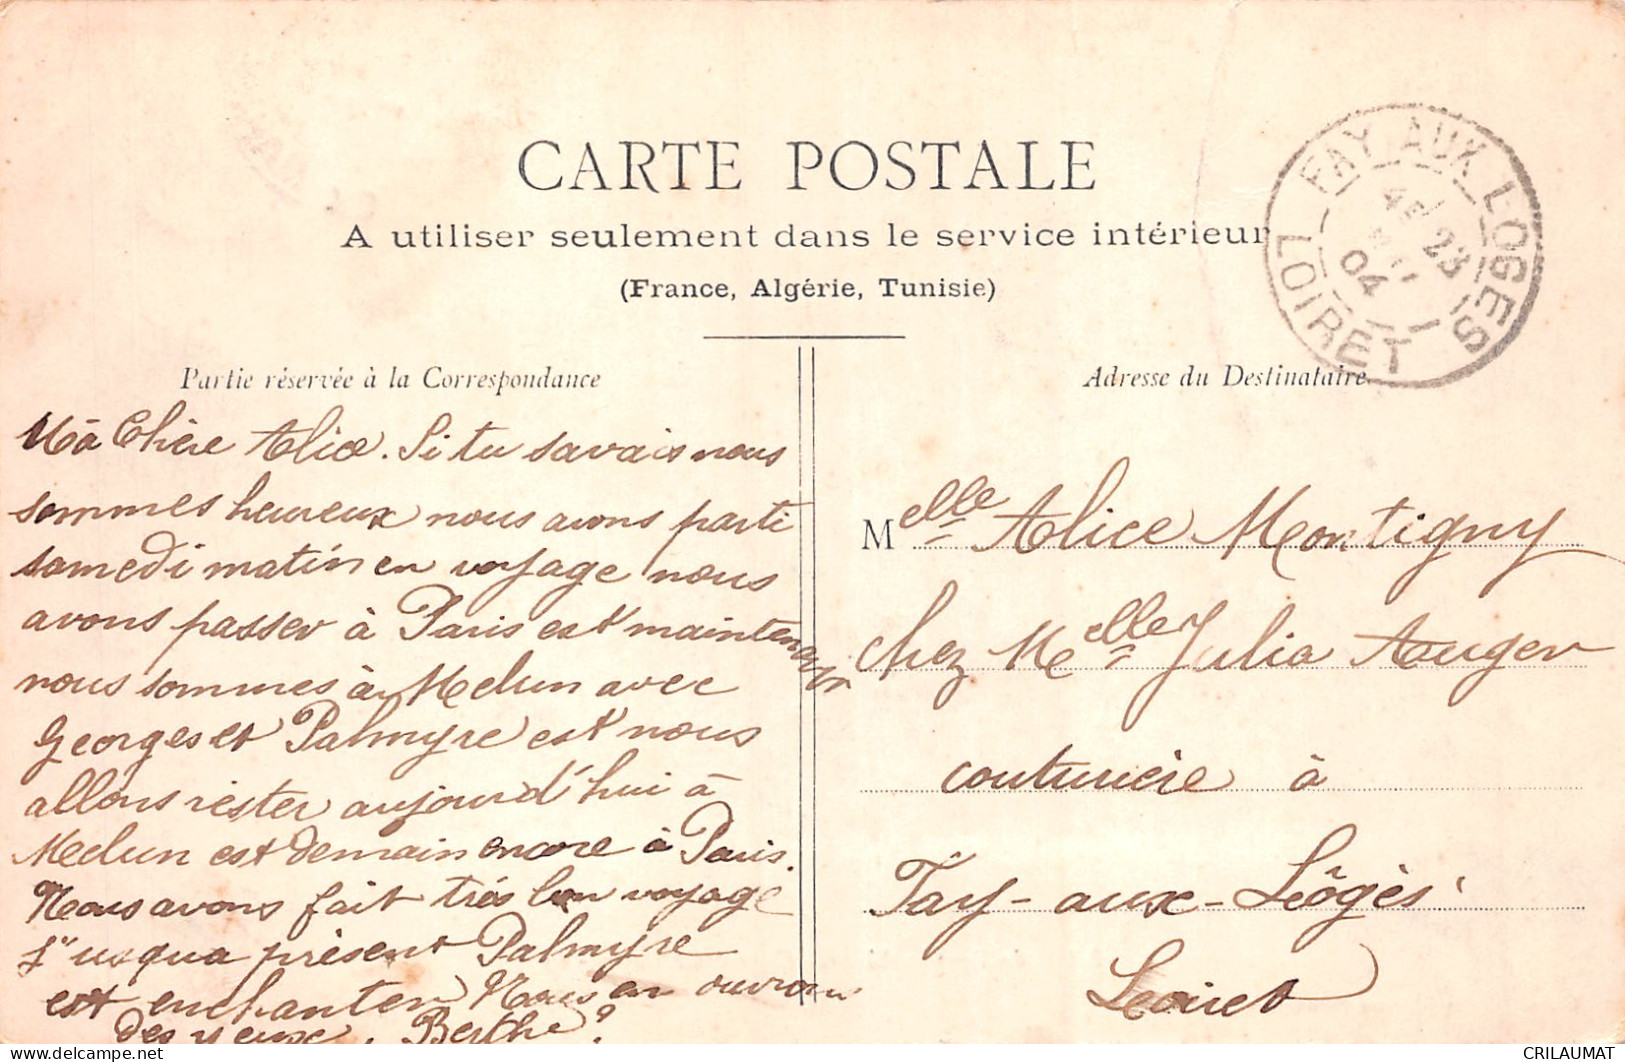 CARTE POSTALE
A utiliser seulement dans le service intérieur
(France, Algérie, Tunisie)
FAY AUX LOGES
23
04
LOIRET
Partie réservée à la Correspondance
Ma Chère Alice. Si tu savais nous
sommes heureux nous avons parti
samedi matin en voyage nous
avons passer à Paris est maintenant
nous sommes à Melun avec
Georges et Palmyre est nous
allons rester aujourd'hui à
Melun est demain encore à Paris.
Nous avons fait trés bon voyage
j'usqua présent Palmyre
est enchanter Nous en ouvrons
des yeux. Berthe
Adresse du Destinataire
Melle Alice Montigny
chez Melle Julia Auger
couturière à
Fay-aux-Lôgès
Loiret
CRILAUMAT